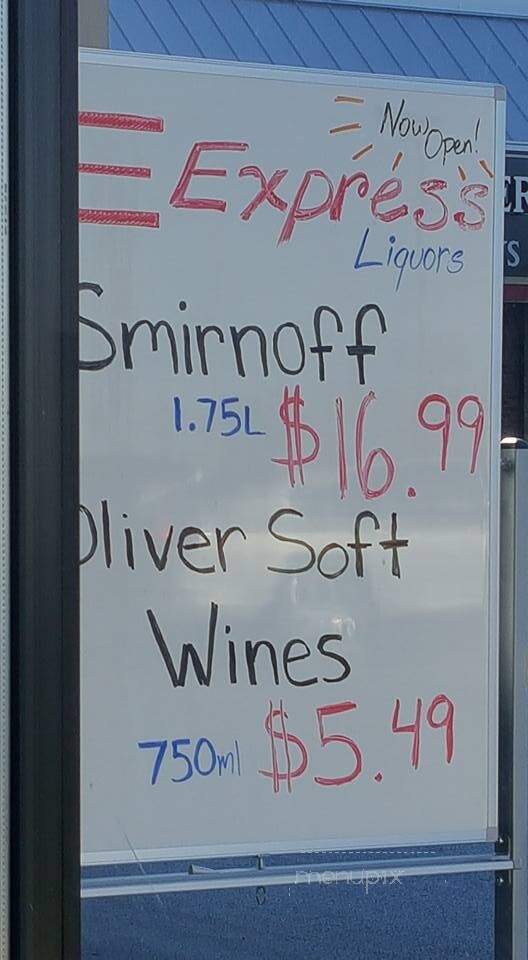 Now
Open!
Express
Liquors
Smirnoff
1.75L $16.99
Oliver Soft
Wines
750ml $5.49
menupix